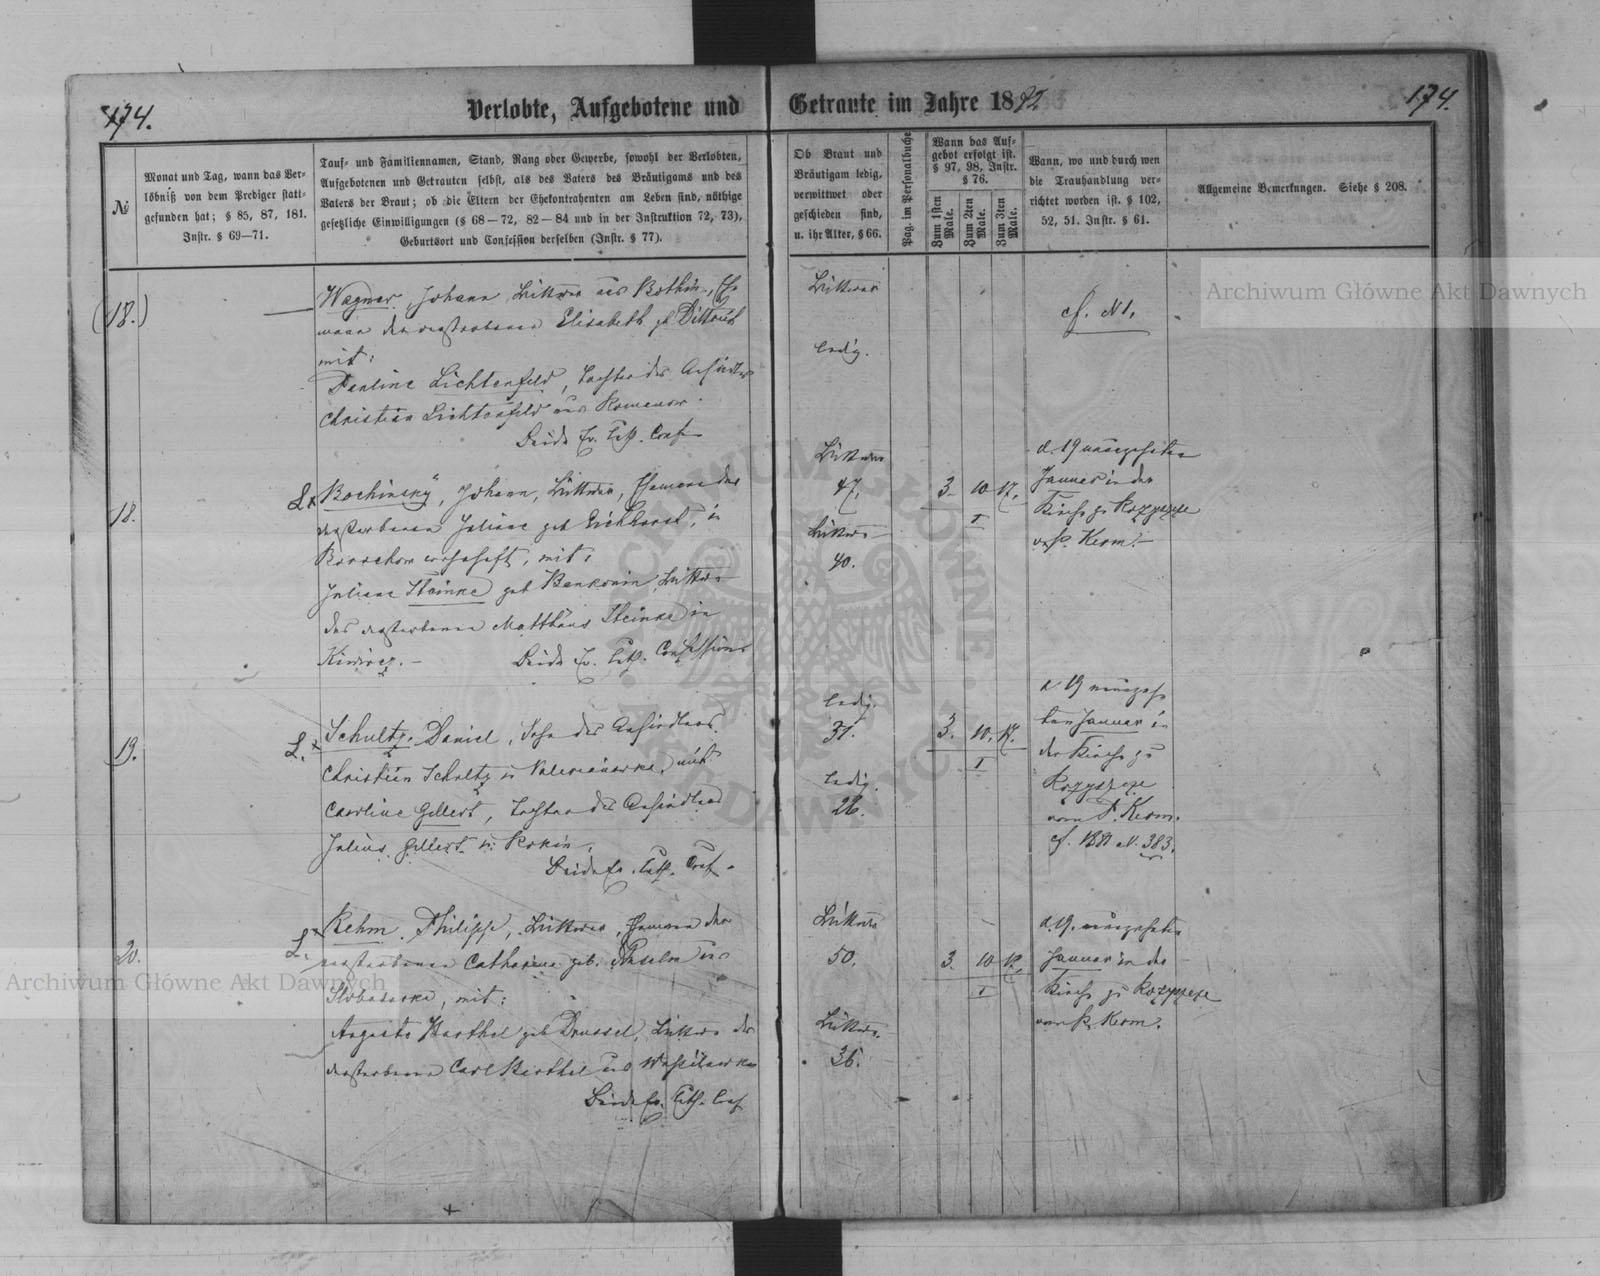 174.
Verlobte, Aufgebotene und
Getraute im Jahre 1892.
174.
№
Monat und Tag, wann das Ver-
löbniß von dem Prediger statt-
gefunden hat; § 85, 87, 181.
Instr. § 69—71.
Tauf- und Familiennamen, Stand, Rang oder Gewerbe, sowohl der Verlobten,
Aufgebotenen und Getrauten selbst, als des Vaters des Bräutigams und des
Vaters der Braut; ob die Eltern der Ehekontrahenten am Leben sind, nöthige
gesetzliche Einwilligungen (§ 68—72, 82—84 und in der Instruktion 72, 73),
Geburtsort und Confession derselben (Instr. § 77).
Ob Braut und
Bräutigam ledig,
verwittwet oder
geschieden sind,
u. ihr Alter, § 66.
Pag. im Personalbuche
Wann das Auf-
gebot erfolgt ist.
§ 97, 98, Instr.
§ 76.
Zum 1sten
Male.
Zum 2ten
Male.
Zum 3ten
Male.
Wann, wo und durch wen
die Trauhandlung ver-
richtet worden ist. § 102,
52, 51. Instr. § 61.
Allgemeine Bemerkungen. Siehe § 208.
(18.)
Wagner, Johann, Wittwer aus
der verstorbenen Elisabeth g. Dittrich
mit:
Pauline Lichtenfeld, Tochter des Ansiedlers
Christian Lichtenfeld aus Romanow.
Beide Ev. Luth. Conf.
Wittwer
ledig.
cf. N 1.
18.
Johann, Wittwer, Ehemann der
verstorbenen Juliane geb. Eichhorst, in
wohnhaft, mit:
Juliane Steinke geb. Wittwe
des verstorbenen Matthäus Steinke in
Beide Ev. Luth. Confession
Wittwer
47.
Wittwe
40.
3. 10. 17.
I
d. 19 neunzehnten
Januar in der
Kirche zu Rozyszcze
v. P. Kerm.
19.
Schultz, Daniel, Sohn des Ansiedlers
Christian Schultz in mit
Caroline Gellert, Tochter des Ansiedlers
Julius Gellert in
Beide Ev. Luth. Conf.
ledig.
31.
ledig.
26.
3. 10. 17.
I
d. 19 neunzehn
ten Januar in
der Kirche zu
Rozyszcze
vom P. Kerm.
cf. N. 383.
20.
Rehm, Philipp, Wittwer, Ehemann der
verstorbenen Catharina geb. aus
mit:
Auguste Barthel geb. Drussel, Wittwe des
verstorbenen Carl Barthel aus
Beide Ev. Luth. Conf
Wittwer
50.
Wittwe.
36.
3. 10. 17.
I
d. 19. neunzehnten
Januar in der
Kirche zu Rozyszcze
vom P. Kerm.
Archiwum Główne Akt Dawnych
Archiwum Główne Akt Dawnych
ARCHIWUM GŁÓWNE AKT DAWNYCH